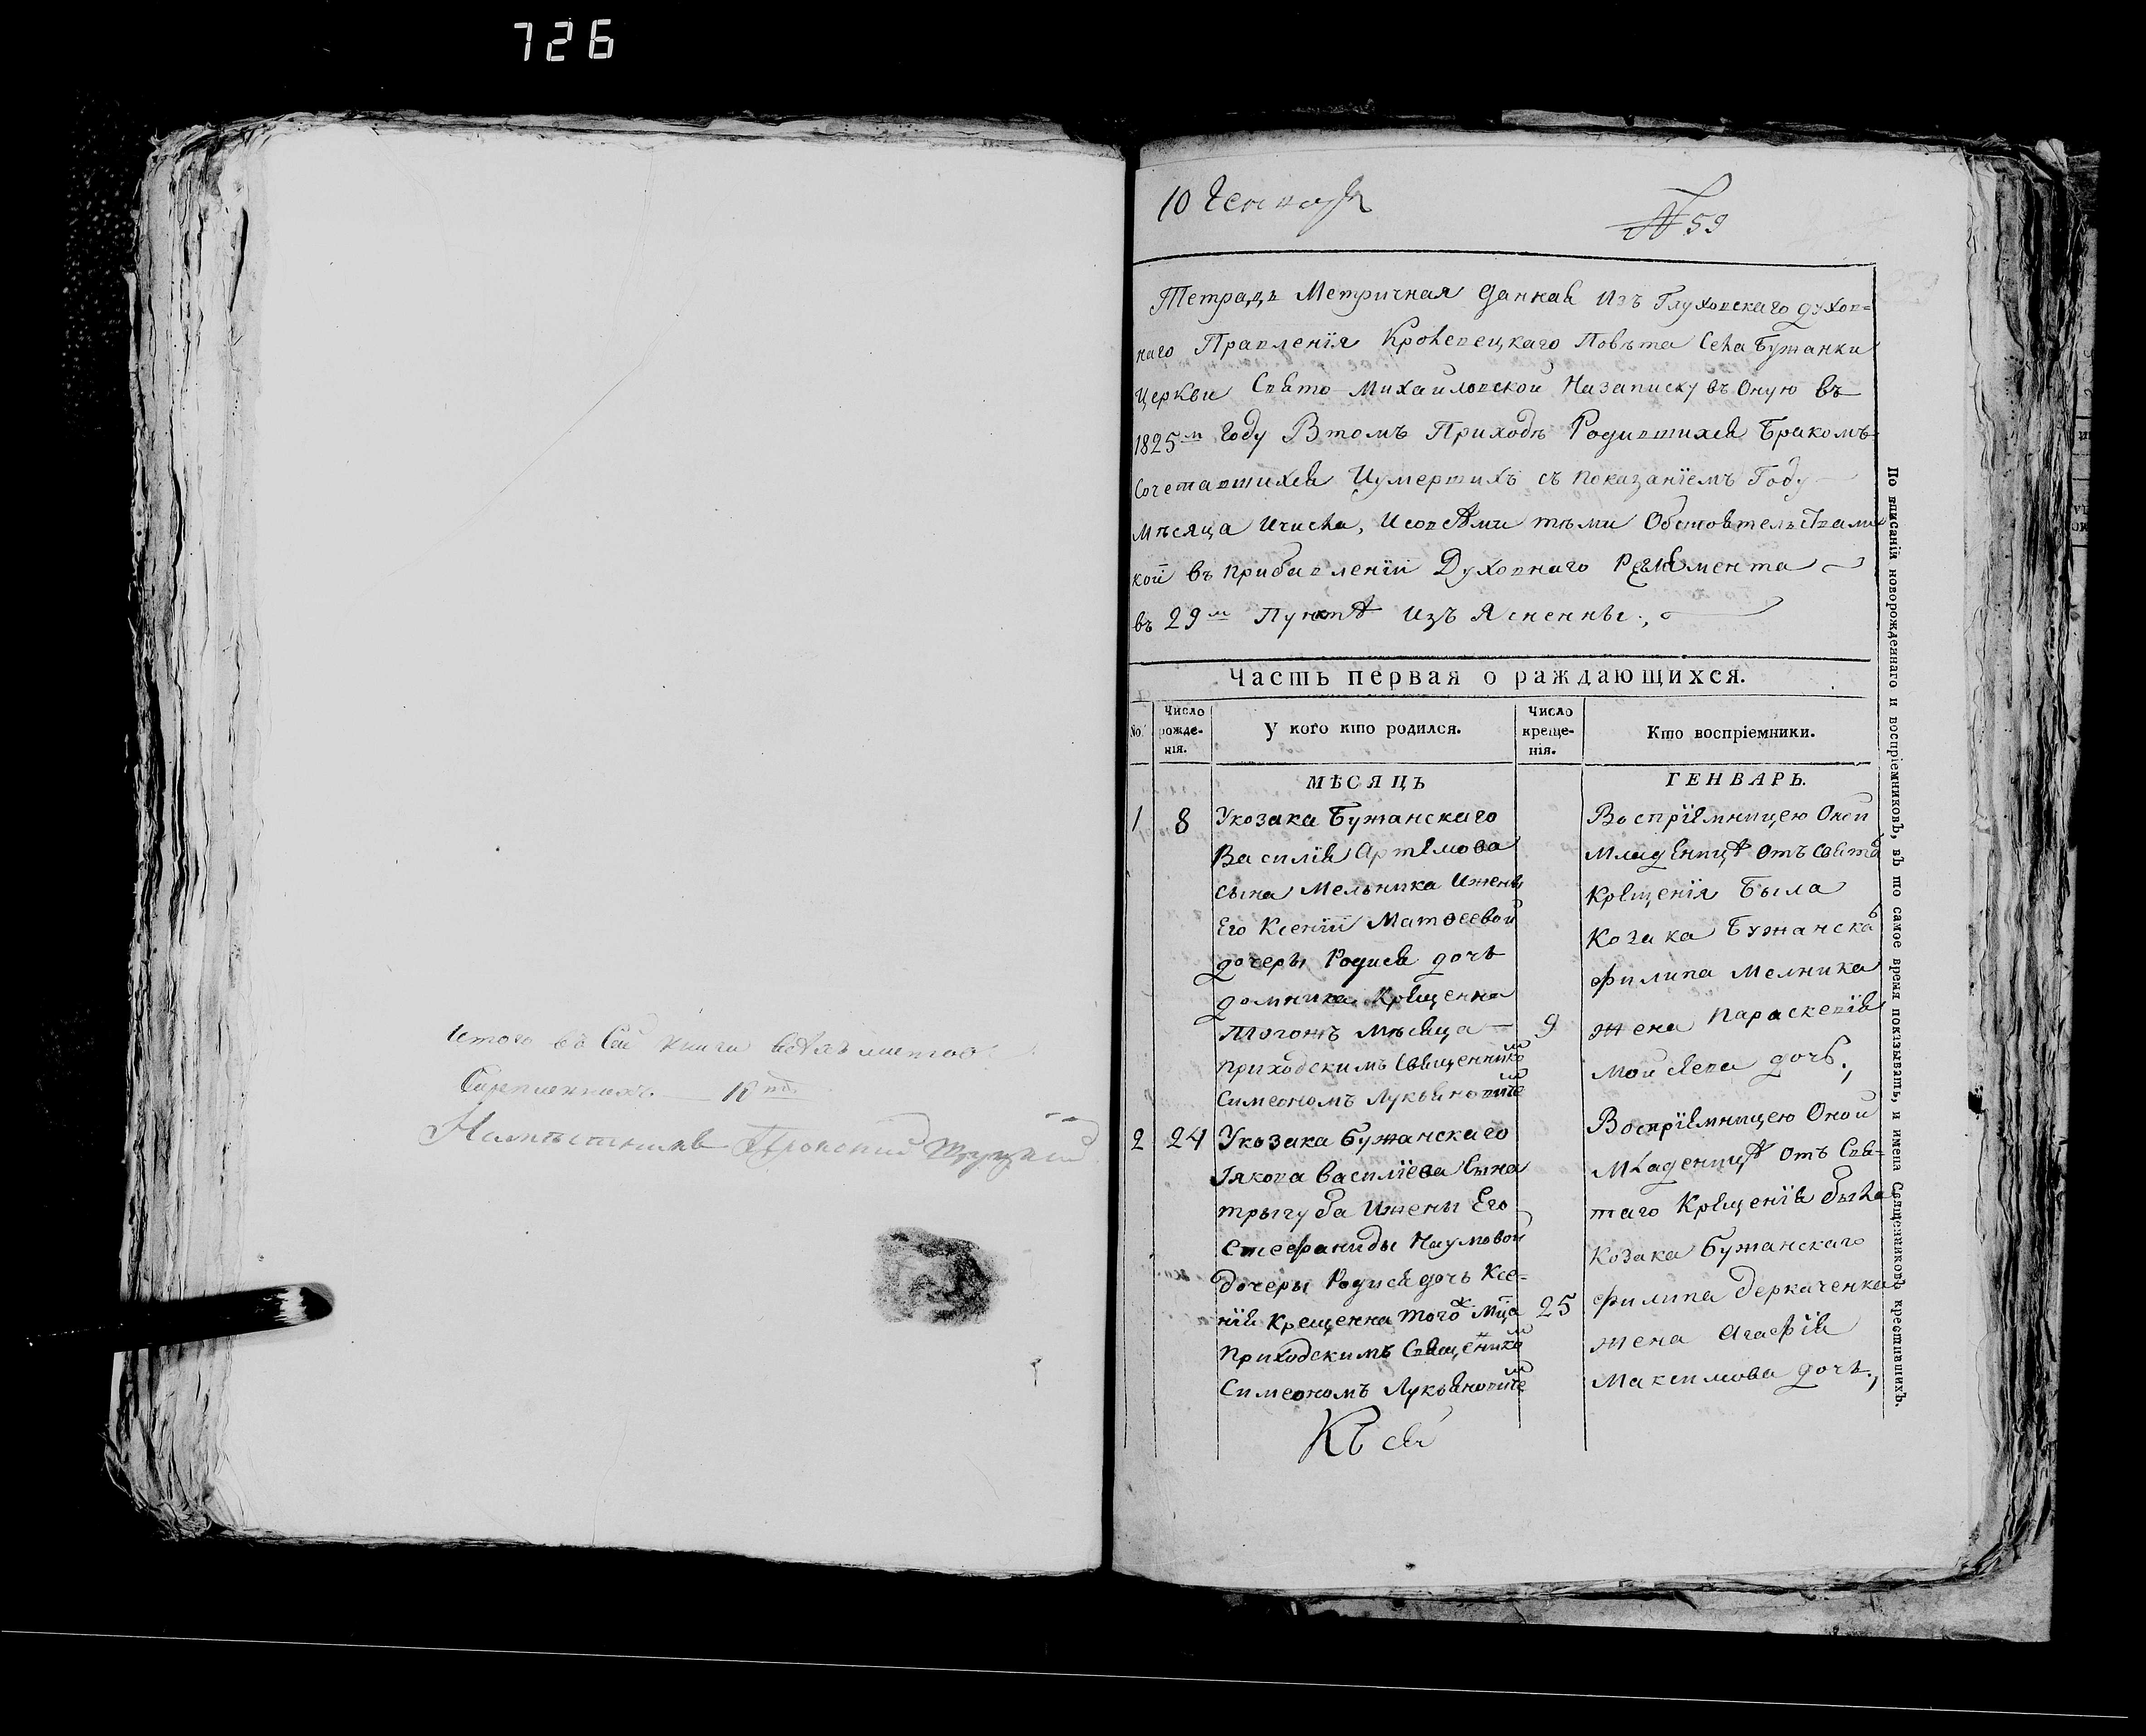 726
Итого въ Сей книги всѣхъ листовъ
Скрепленныхъ — 10
Намѣстникъ
10
№ 59
Тетрадъ Метричная Данная Изъ Глуховскаго духов=
наго Правленїя Кролевецкаго Повѣта Села Бужанки
Церкви Свято Михайловской Назаписку въ Оную въ
1825м Году Втомъ Приходѣ Родившихся Бракомъ
Сочетавшихся Иумершихъ съ показанїемъ Году
мѣсяца Ичисла, Исовсѣми тѣми Обстоятельствами
кой въ прибавленїи Духовнаго Регламента
въ 29м Пунктѣ Изъ Ясненны.,
Часть первая о раждающихся.
No.
Число рожде-нія.
У кого кто родился.
Число креще-нія.
Кто воспріемники.
МѢСЯЦЪ
ГЕНВАРЬ.
1 8
Укозака Бужанскаго
Василїя Артемова
сына Мельника Ижены
Его Ксенїи Матѳеевой
дочеры Родися дочь
домника Крещенна
Тогожъ мѣсяца —
приходскимъ Священнико м
Симеономъ Лукьяновиче м
9
Воспрїемницею Оной
младенцѣ отъ Свята
Крещенїя Была
Козака Бужанска
филипа Мелника
жена Параскевїя
Мойсеева дочь.,
2 24
Укозака Бужанскаго
Іякова Василїева Сына
трыгуба Ижены Его
Стефаниды Наумовой
дочеры Родися дочь Ксе=
нїя Крещенна того ж Мца
Приходскимъ Священнико м
Симеономъ Лукьяновиче м
25
Воспрїемницею Оной
Младенцѣ Отъ Свя=
таго Крещенїя была
Козака Бужанскаго
филипа деркаченка
жена Агафїя
Максимова дочь.,
Къ сей
По вписаніи новорожденнаго и воспріемниковъ, въ то самое время показывать, и имена Священниковъ крестившихъ.